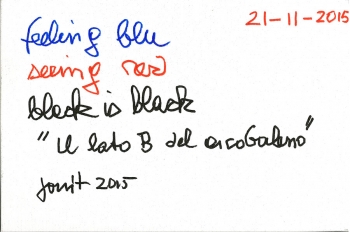 21-11-2015
feeling blu
seeing red
black is black
"Il lato B del arcobaleno"
jonit 2015